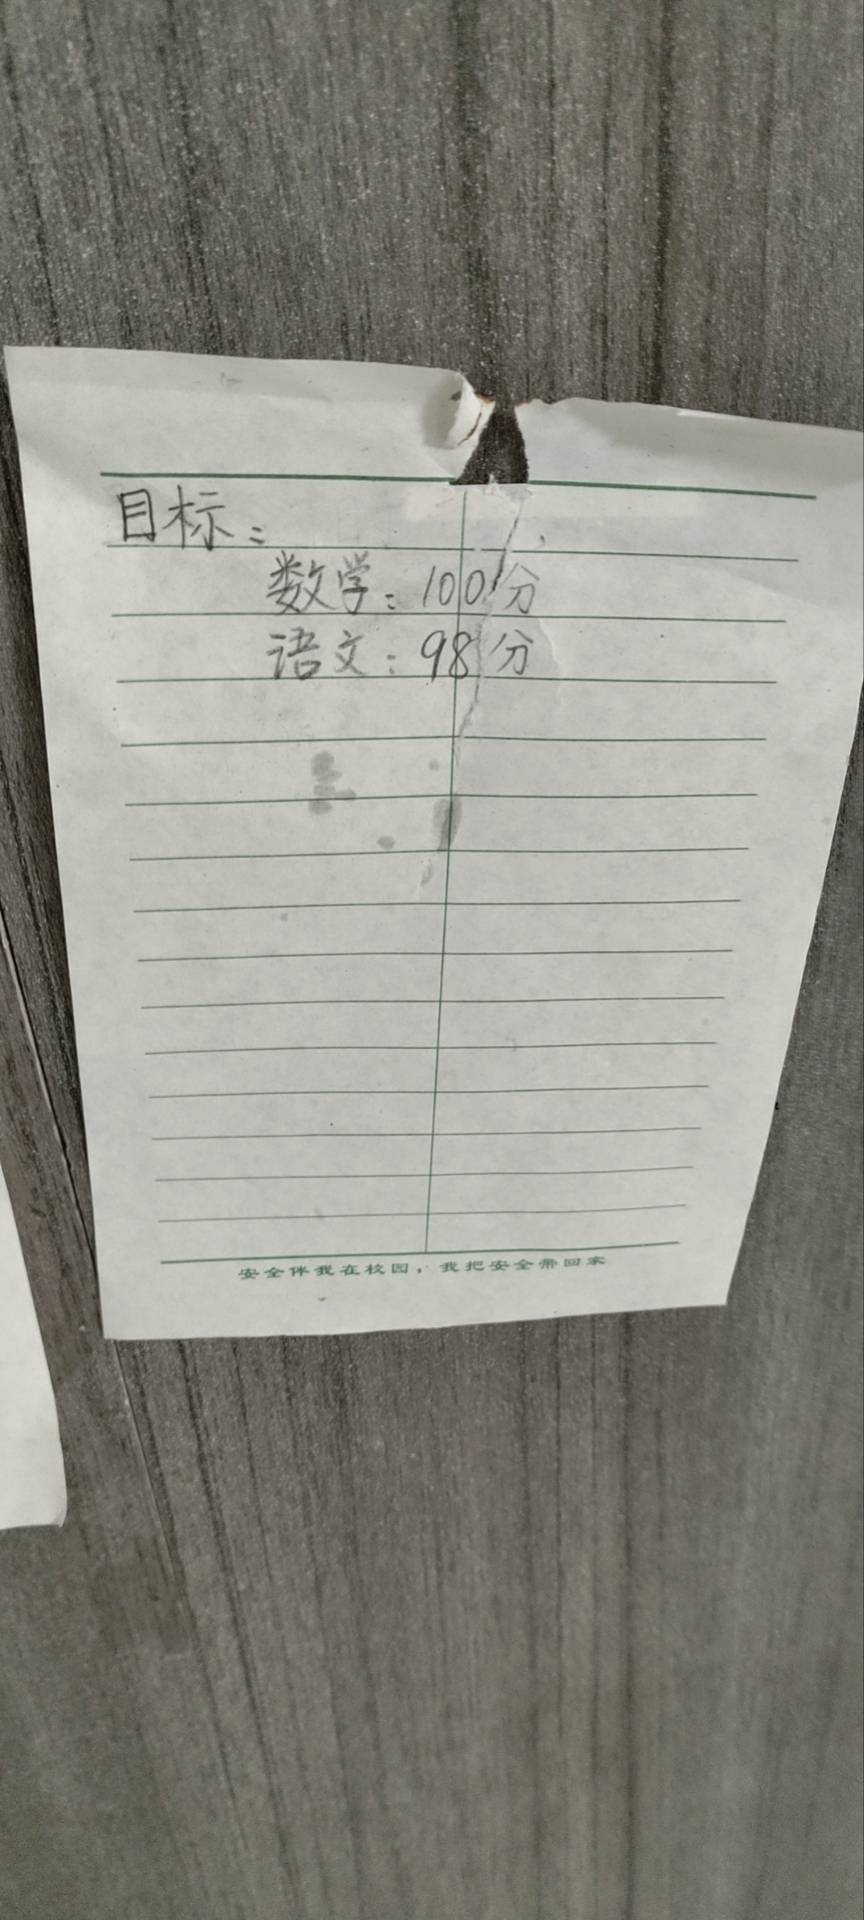 目标：
数学：100分
语文：98分
安全伴我在校园，我把安全带回家